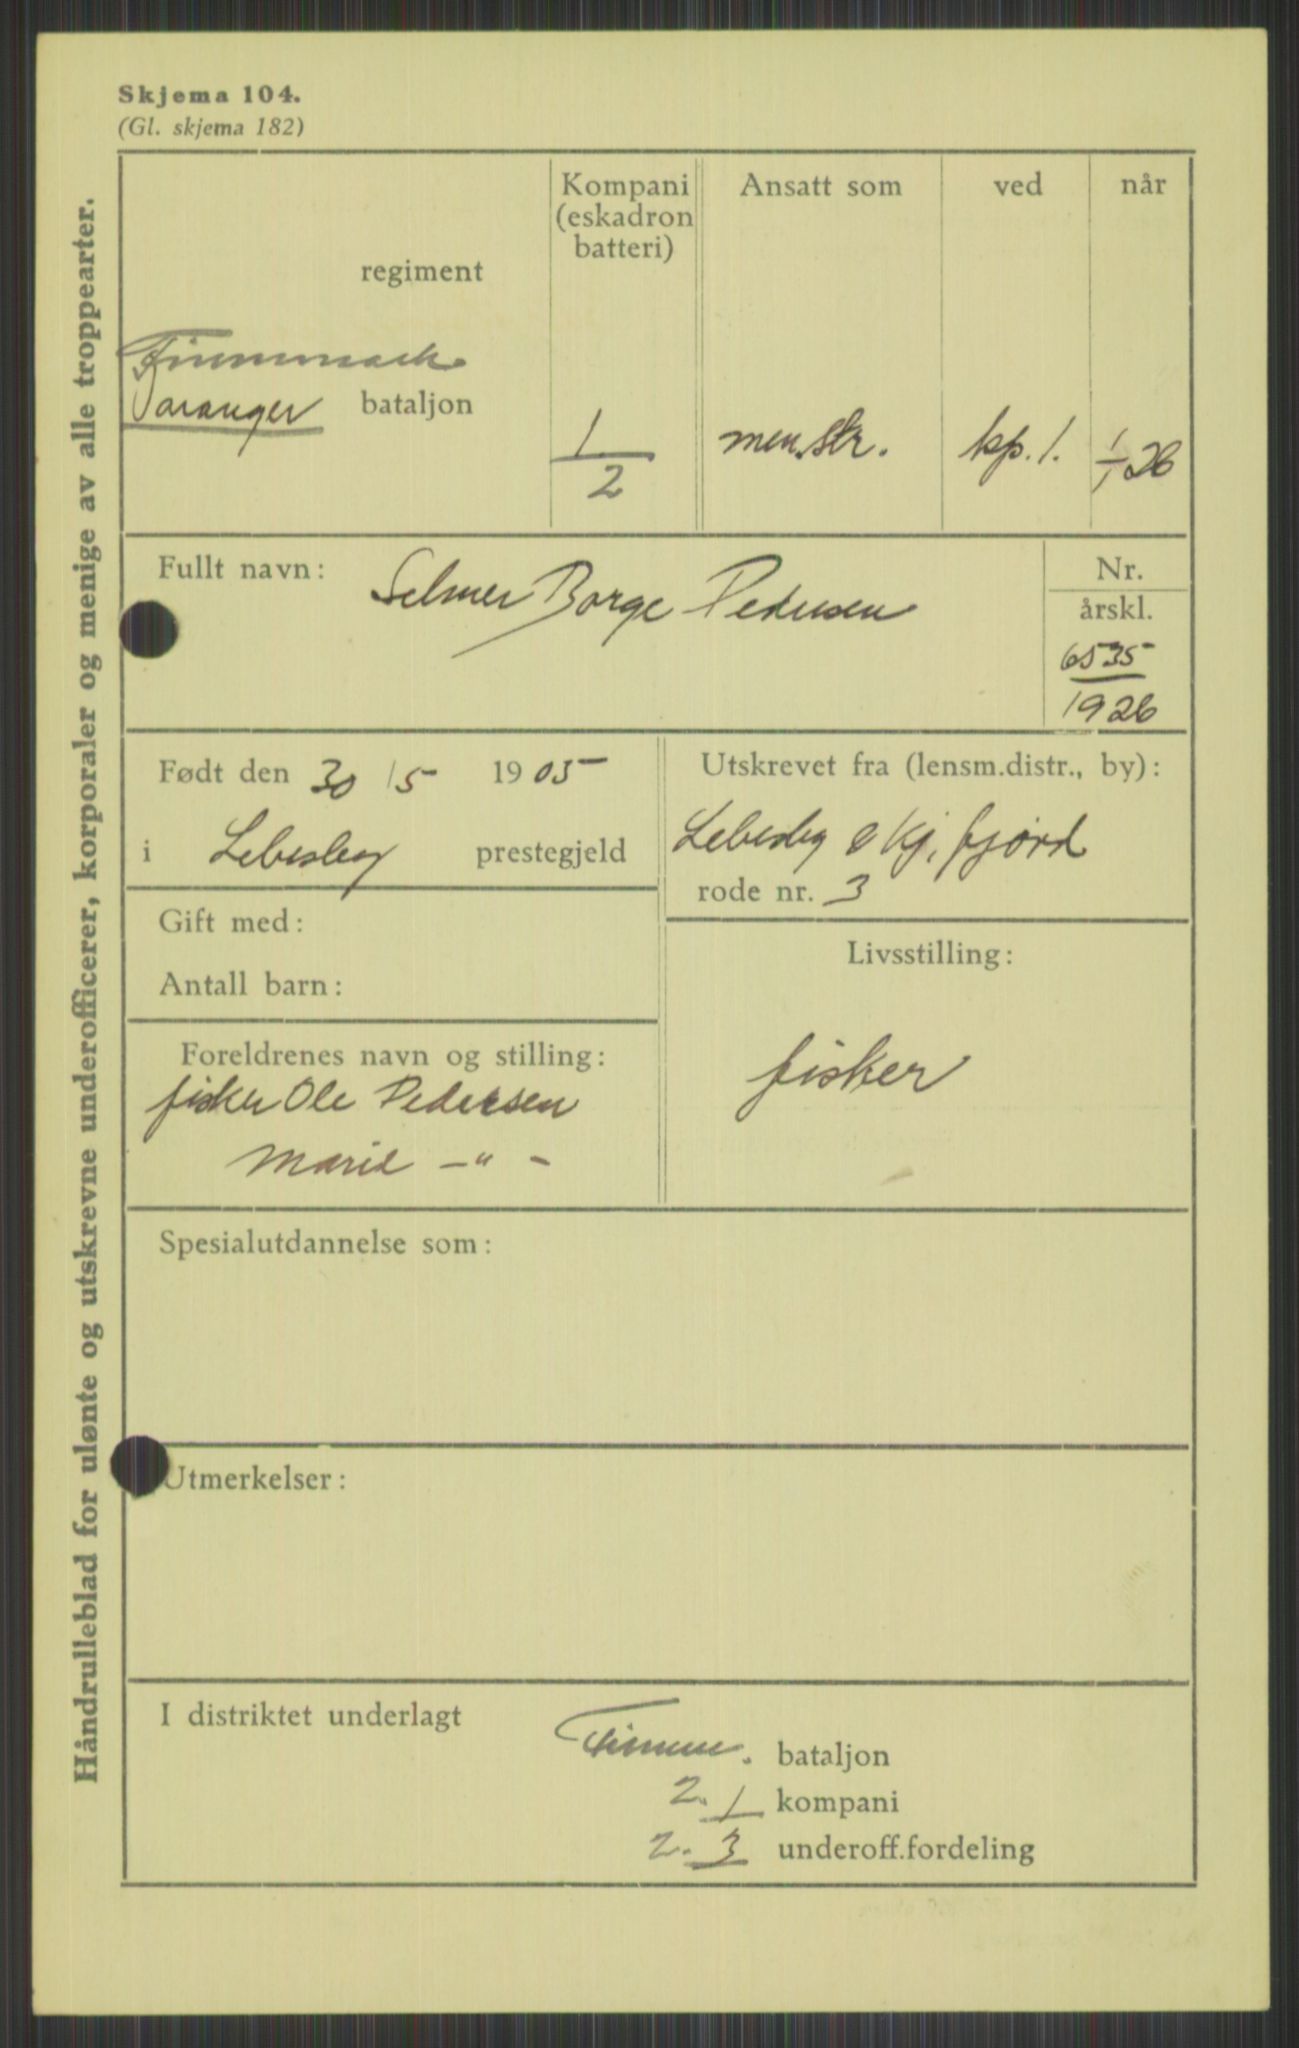 Skjema 104.
(Gl. skjema 182)
Håndrulleblad for ulønte og utskrevne underofficerer, korporaler og menige av alle troppearter.
regiment
Finnmark
Varanger bataljon
Kompani
(eskadron
batteri)
1
2
Ansatt som
men.str.
ved
kp. 1.
når
1/1 26
Fullt navn:
Selmer Borge Pedersen
Nr.
årskl.
6535
1926
Født den 30/5 1905
i Lebesby prestegjeld
Utskrevet fra (lensm.distr., by):
Lebesby & Kj.fjord
rode nr. 3
Gift med:
Antall barn:
Livsstilling:
fisker
Foreldrenes navn og stilling:
fisker Ole Pedersen
Marie -"-
Spesialutdannelse som:
Utmerkelser:
I distriktet underlagt
Finnm. bataljon
2. 1 kompani
2. 3 underoff.fordeling